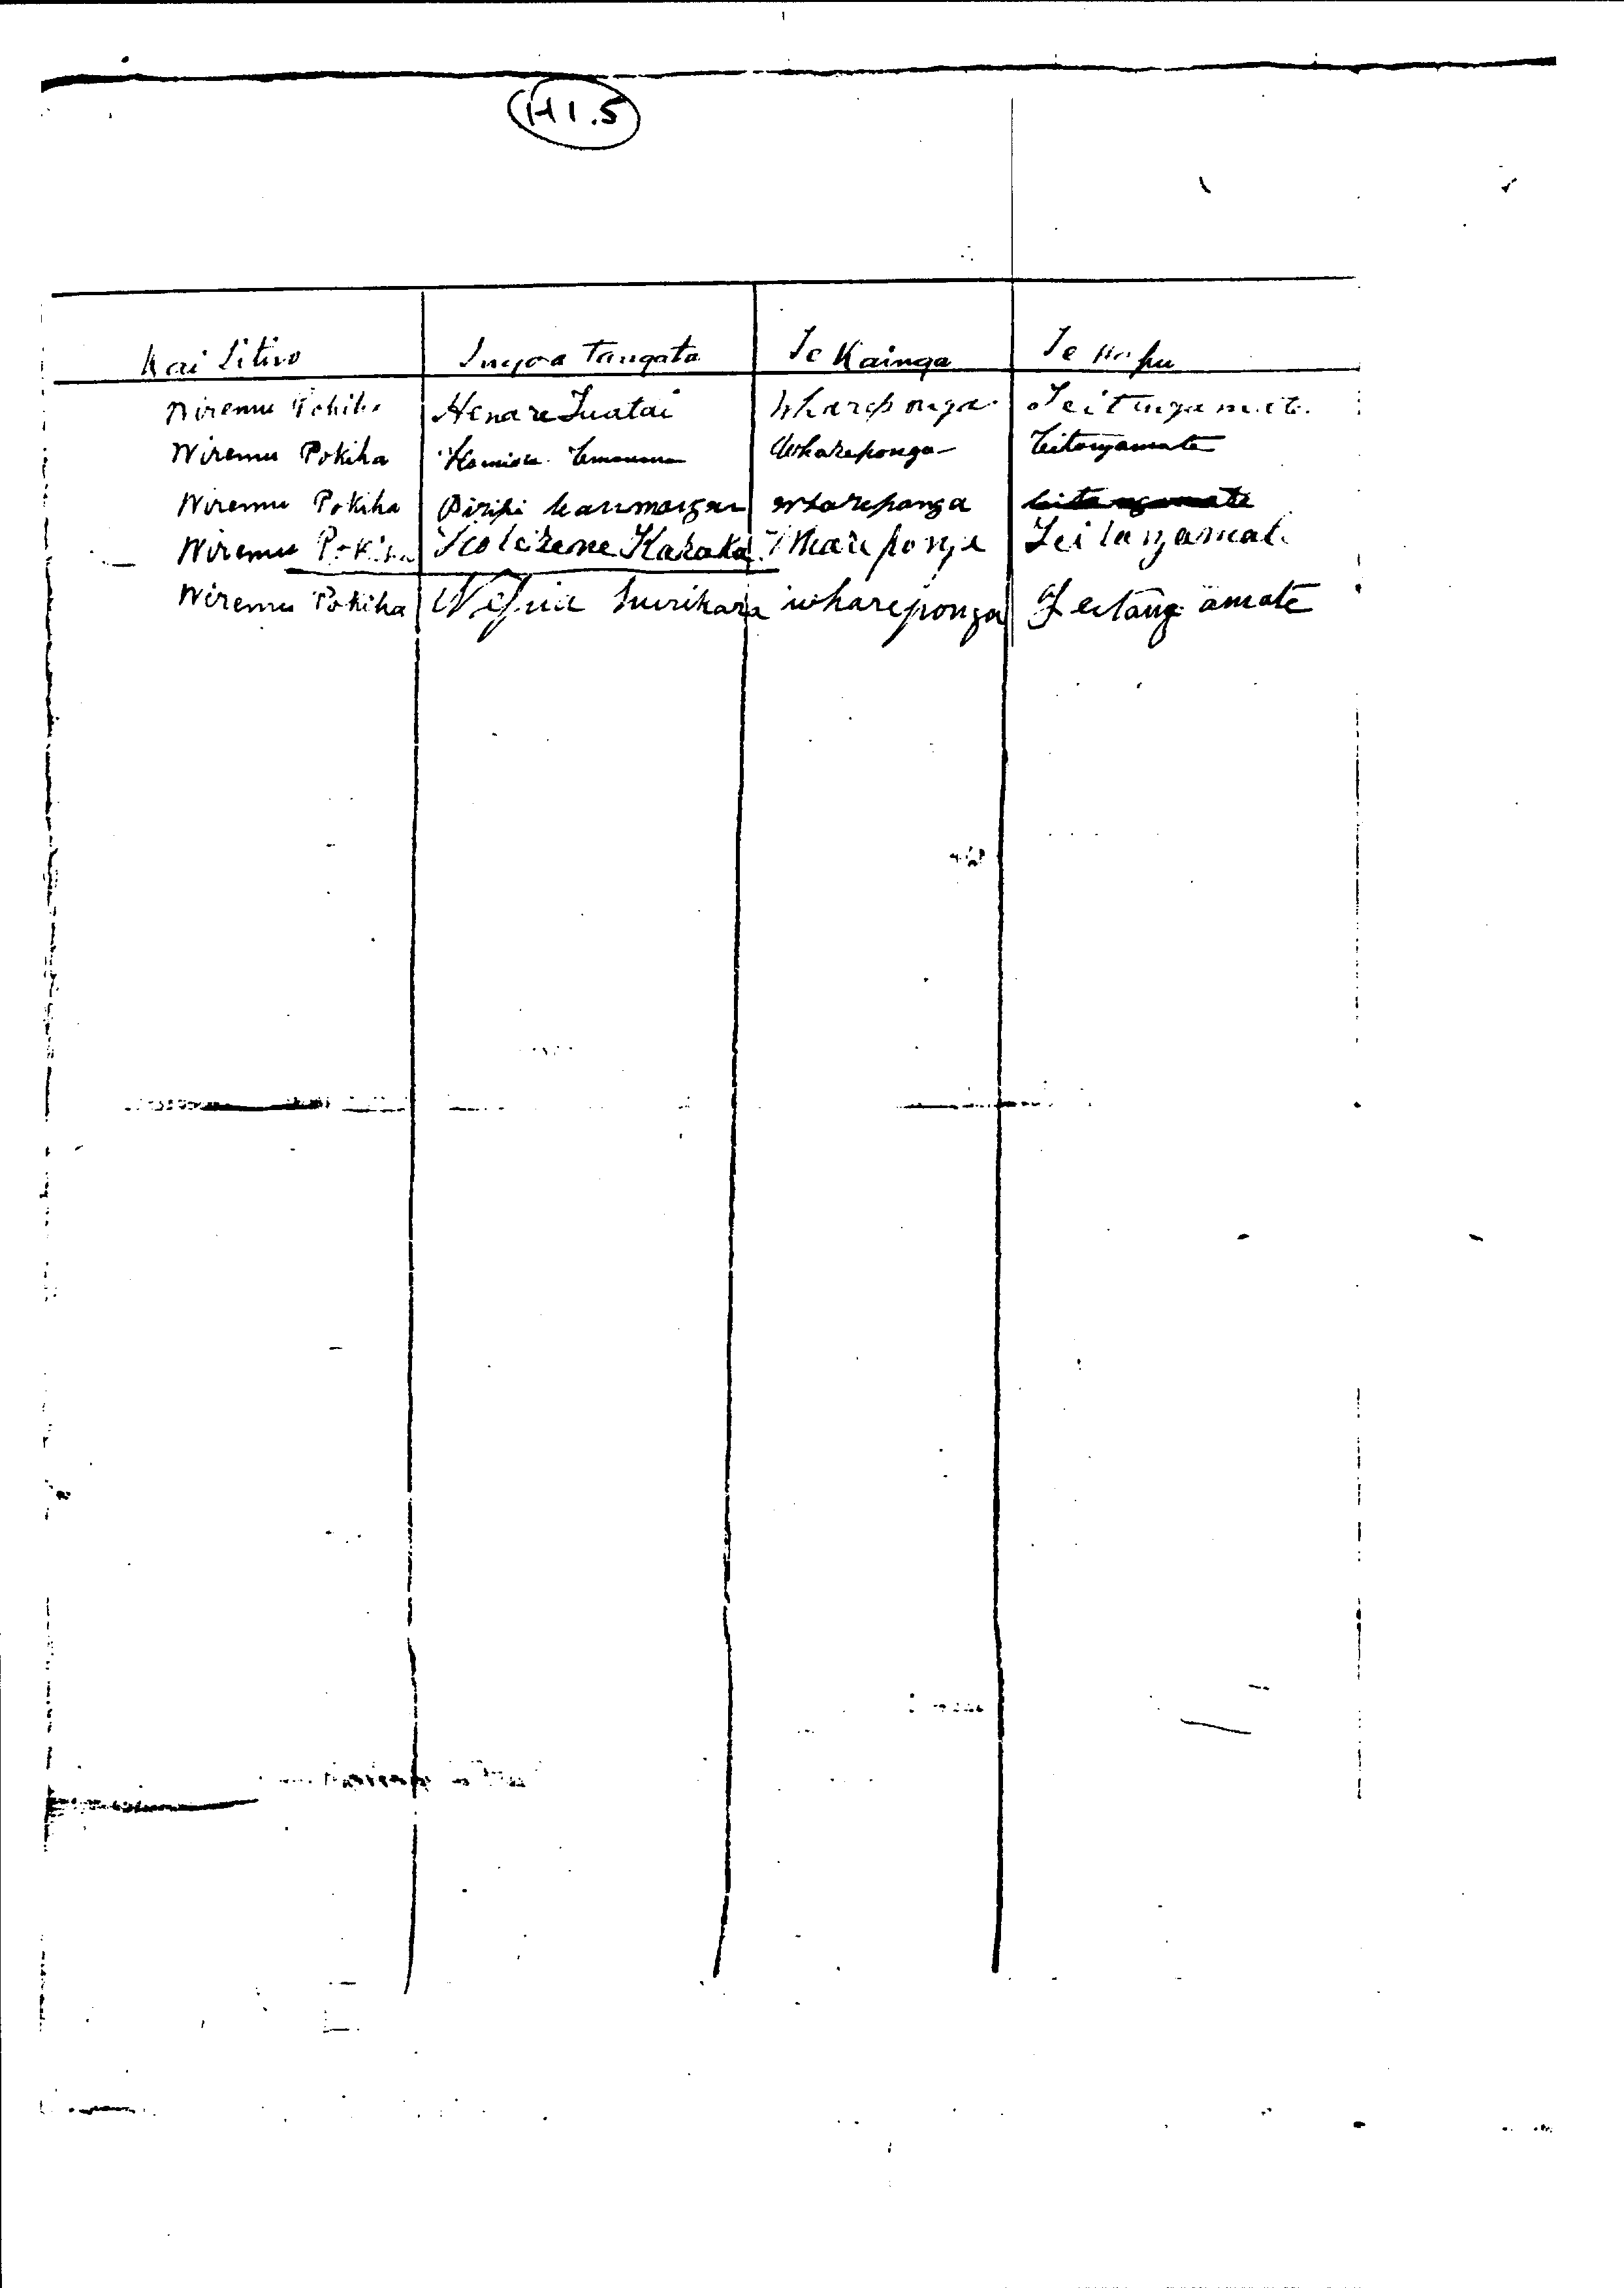 H1.5
Kai Titiro Ingoa Tangata Te Kainga Te Hapu
Wiremu Pokiha Henare Tuatai Whareponga Teitangamate
Wiremu Pokiha Whareponga Teitangamate
Wiremu Pokiha Piripi Whareponga teitangamate
Wiremu Pokiha Karaka Whareponga Teitangamate
Wiremu Pokiha Nepia hurikara whareponga Teitangamate